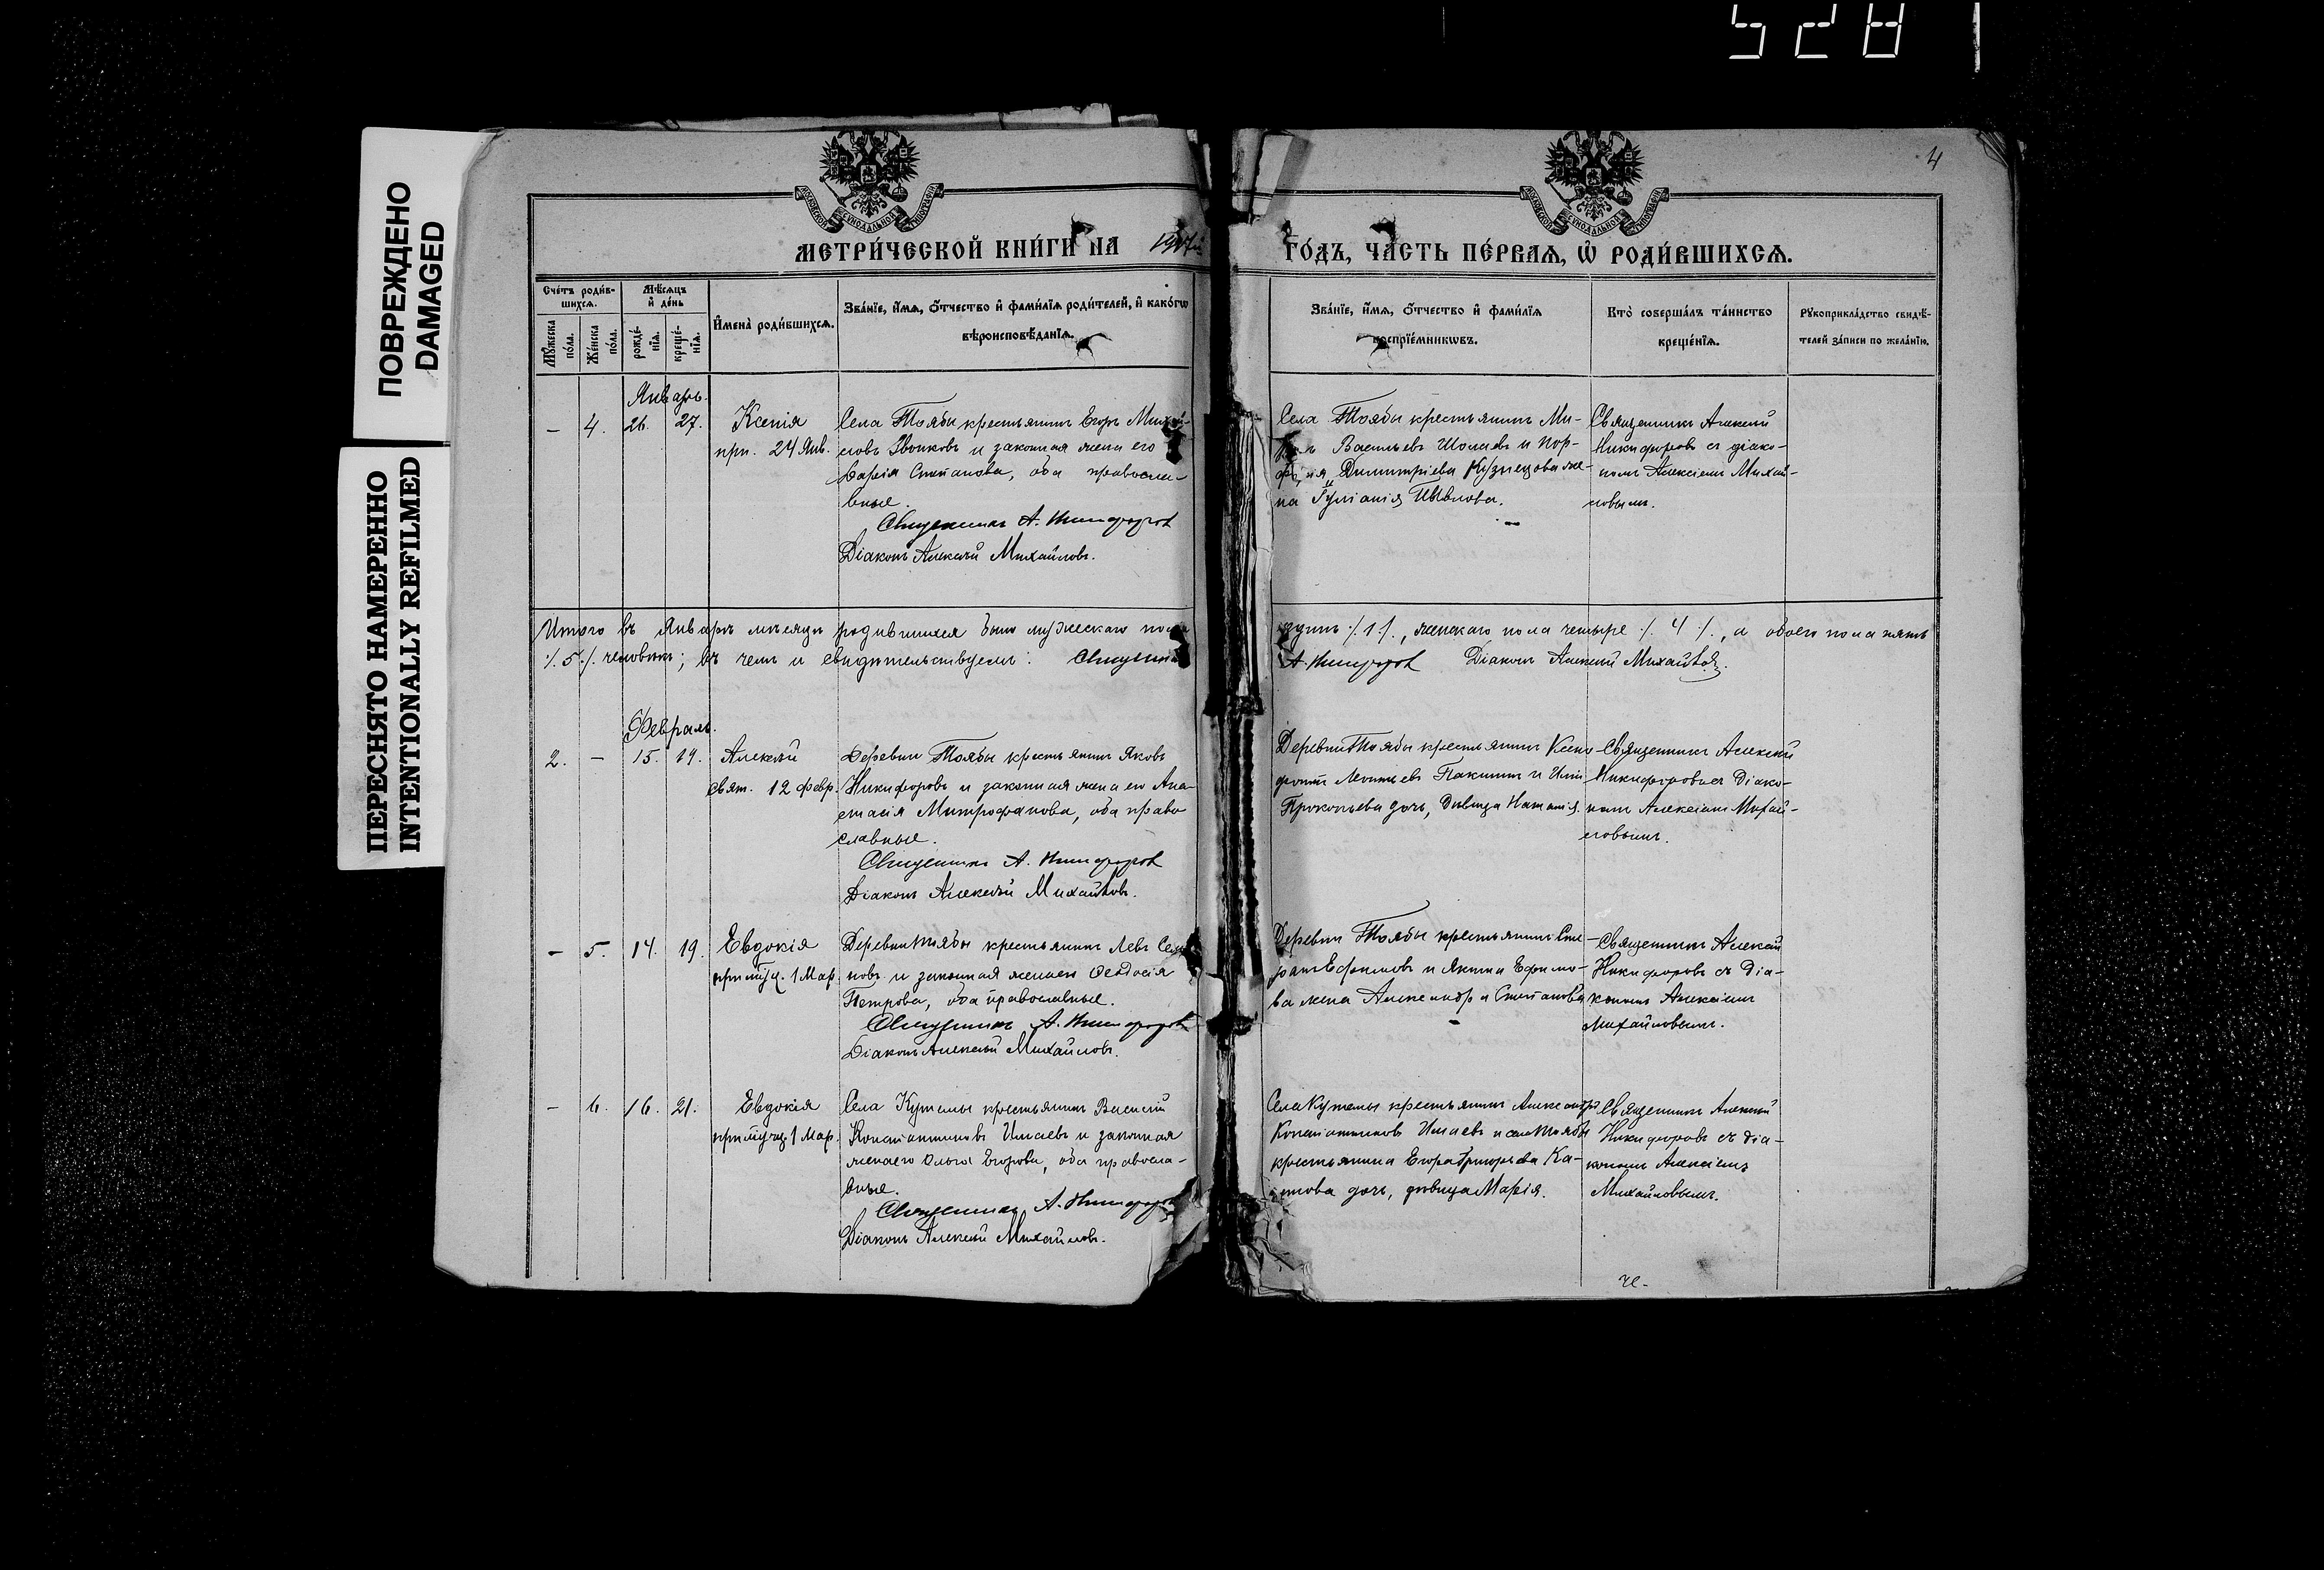 5281
4
ПОВРЕЖДЕНО
DAMAGED
ПЕРЕСНЯТО НАМЕРЕННО
INTENTIONALLY REFILMED
МЕТРИ́ЧЕСКОЙ КНИ́ГИ НА
ГО́ДЪ, ЧА́СТЬ ПЕ́РВАЯ, Ѿ РОДИ́ВШИХСЯ.
Сче́тъ роди́в-
шихся.
Мѣ́сяцъ
и҆ де́нь
Му́жеска
по́ла.
Же́нска
по́ла.
рожде́-
нїя.
креще́-
нїя.
И҆мена̀ роди́вшихся.
Зва́нїе, и҆́мя, ѻ҆́тчество и҆ фами́лїя роди́телей, и҆ како́гѡ
вѣроисповѣ́данїя.
Зва́нїе, и҆́мя, ѻ҆́тчество и҆ фами́лїя
воспрїе́мникѡвъ.
Кто̀ соверша́лъ та́инство
креще́нїя.
Рукоприкла́дство свидѣ́-
телей за́писи по жела́нїю.
Январь.
– 4. 26. 27.
Ксенія
прп. 24 Янв.
Села Тоябы крестьянинъ Егоръ Михай-
ловъ Звонковъ и законная жена его
Дарія Степанова, оба правосла-
вные.
Священникъ А. Никифоровъ
Діаконъ Алексѣй Михайловъ.
Села Тоябы крестьянинъ Ми-
Васильевъ и Пор-
Димитріева Кузнецова же-
на
Священникъ Алексѣй
Никифоровъ съ діако-
номъ Алексіемъ Михай-
ловымъ.
Итого въ Январѣ мѣсяцѣ родившихся было мужескаго пола
одинъ /.1./, женскаго пола четыре /. 4 /., а обоего пола пять
/.5./. человѣкъ; въ чемъ и свидѣтельствуемъ: Священникъ
А. Никифоровъ Діаконъ Алексѣй Михайловъ.
Февраль.
2. – 15. 19.
Алексѣй
свят. 12 февр.
Деревни Тоябы крестьянинъ Яковъ
Никифоровъ и законная жена его Ана-
стасія Митрофанова, оба право
славные.
Священникъ А. Никифоровъ
Діаконъ Алексѣй Михайловъ.
Деревни Тоябы крестьянинъ Ксено
фонтъ Леонтьевъ Пакшинъ и
Прокопьева дочь, дѣвица Наталія.
Священникъ Алексѣй
Никифоровъ съ Діако-
номъ Алексіемъ Михай-
ловымъ.
– 5. 14. 19.
Евдокія
прпмуч. 1 Мар.
Деревни Тоябы крестьянинъ Левъ Семе
новъ и законная жена его Ѳеодосія
Петрова, оба православные.
Священникъ А. Никифоровъ
Діаконъ Алексѣй Михайловъ.
Деревни Тоябы крестьянинъ
Ефимовъ и Якима Ефимо-
ва жена Александра Степанова
Священникъ Алексѣй
Никифоровъ съ Діа-
кономъ Алексіемъ
Михайловымъ.
– 6. 16. 21.
Евдокія
прпмуч. 1 Мар.
Села Кутемы крестьянинъ Василій
Константиновъ Ишаевъ и законная
жена его Ольга Егорова, оба правосла-
вные.
Священникъ А. Никифоровъ
Діаконъ Алексѣй Михайловъ.
Села Кутемы крестьянинъ Александръ
Константиновъ Ишаевъ и села Тоябы
крестьянина Егора Григорьева Ка-
дочь, дѣвица Марія.
Священникъ Алексѣй
Никифоровъ съ діа-
кономъ Алексіемъ
Михайловымъ.